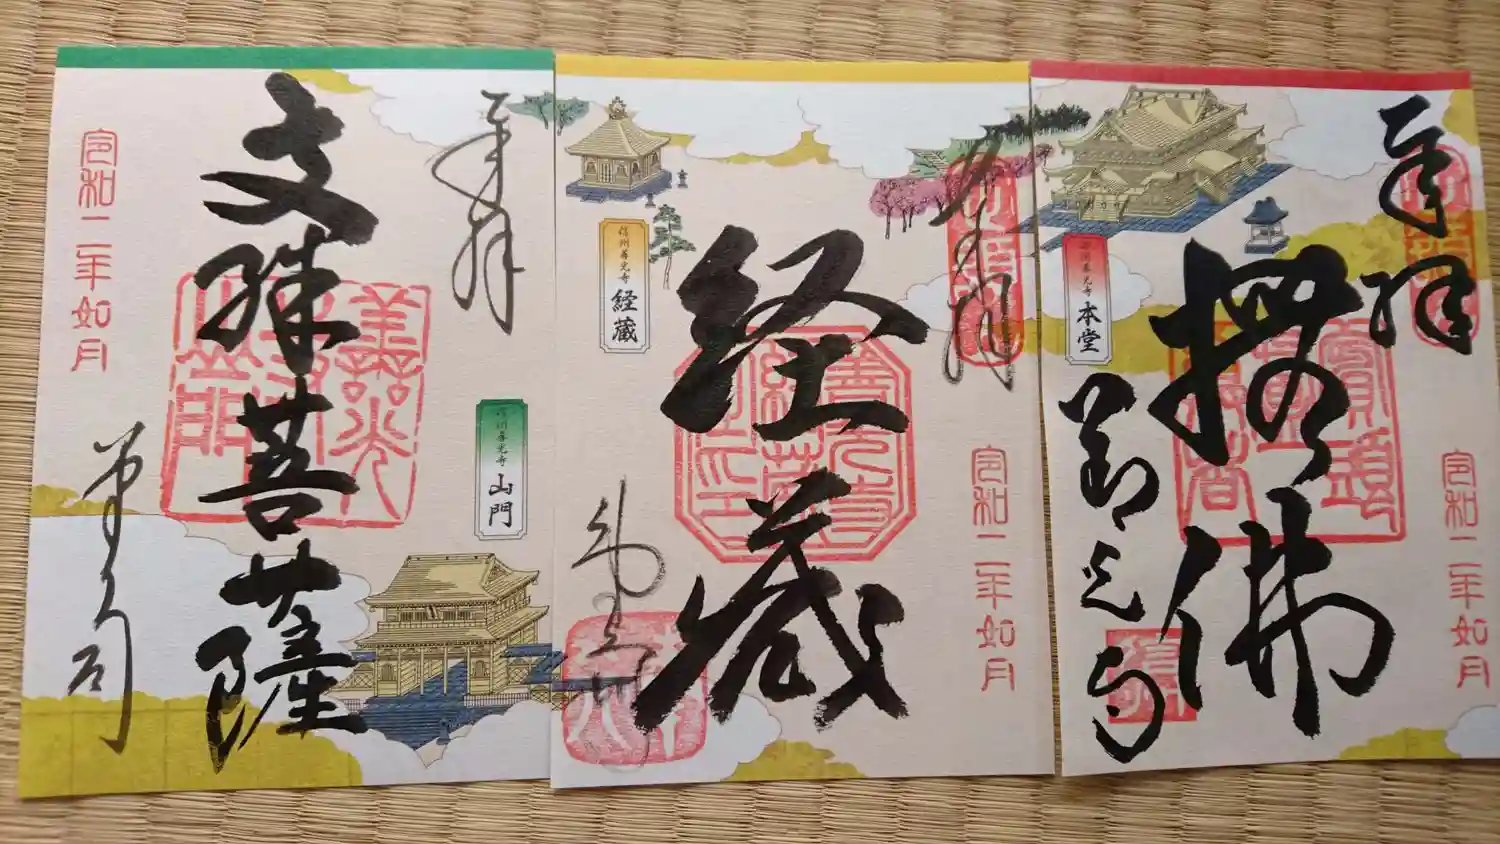 奉拝
文殊菩薩
令和二年如月
信州善光寺 山門
奉拝
経蔵
令和二年如月
信州善光寺 経蔵
奉拝
撫佛
善光寺
令和二年如月
信州善光寺 本堂